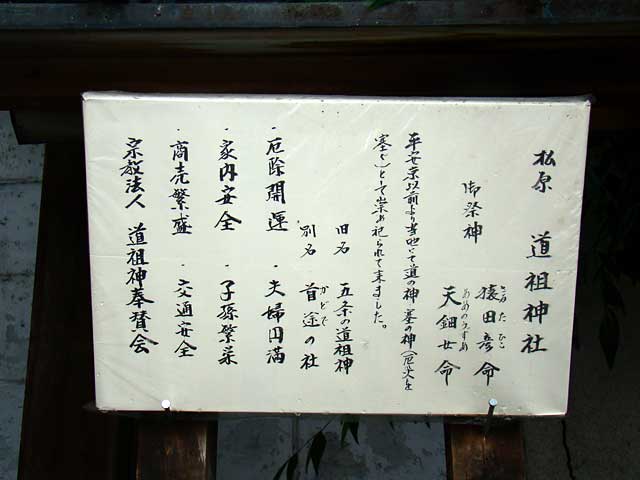 松原 道祖神社
御祭神
猿田彦命
さるた ひこ
天鈿女命
あめのうずめ
平安京以前より当地にて道の神、塞の神(厄災を
塞ぐ)として崇め祀られて来ました。
旧名 五条の道祖神
別名 首途の社
かどで
・厄除開運 ・夫婦円満
・家内安全 ・子孫繁栄
・商売繁盛 ・交通安全
宗教法人 道祖神奉賛会